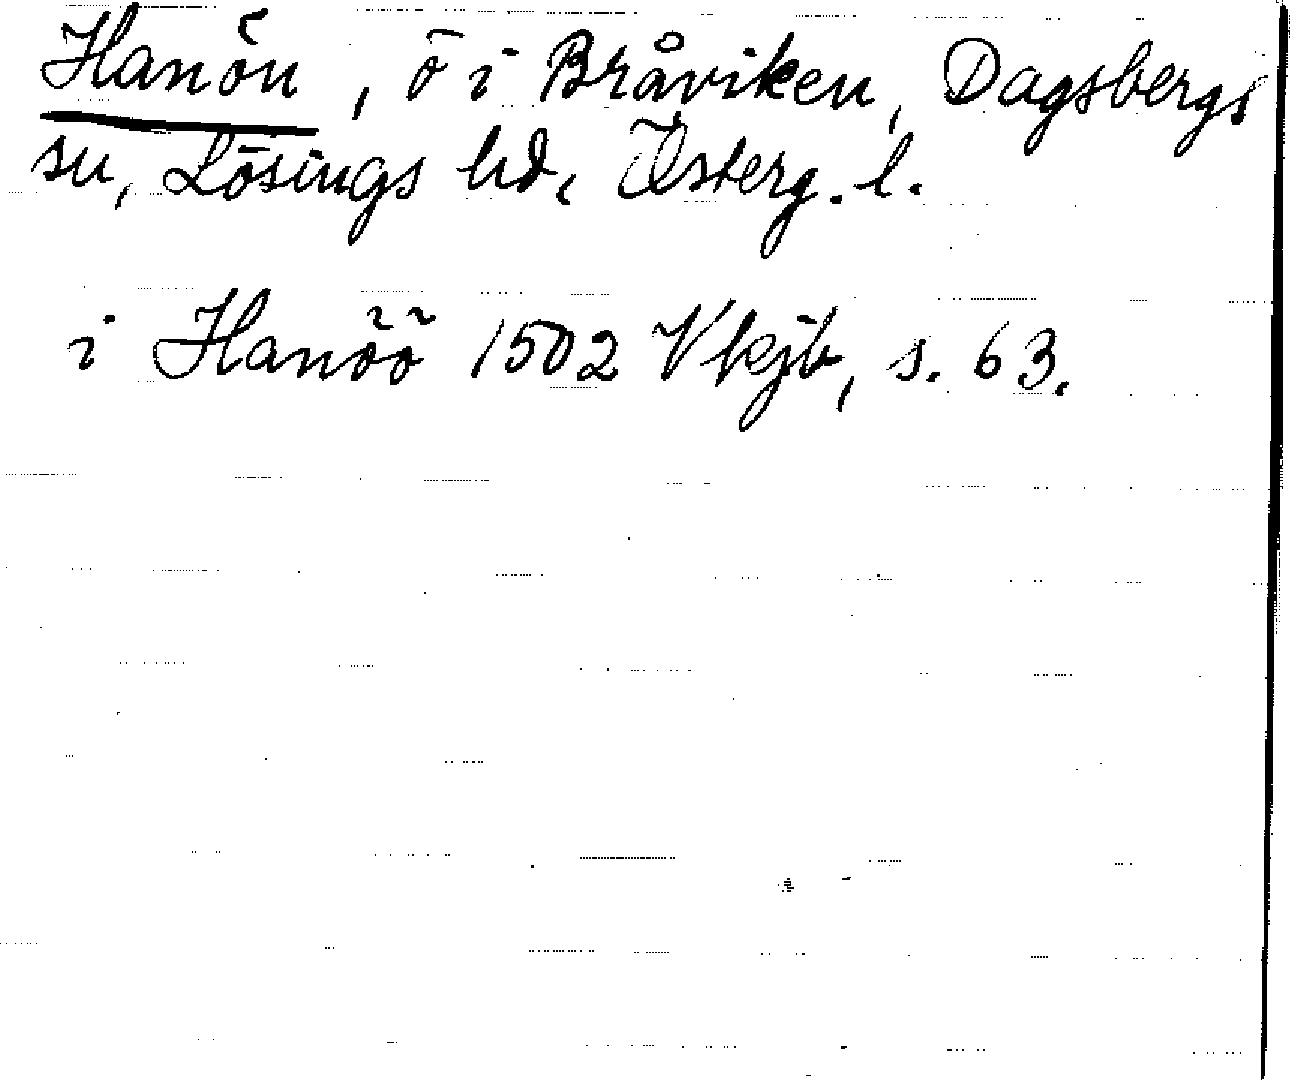 Hanön, ö i Bråviken, Dagsbergs
sn, Lösings hd, Österg. l.
i Hanöö 1502 Vkjb, s. 63.